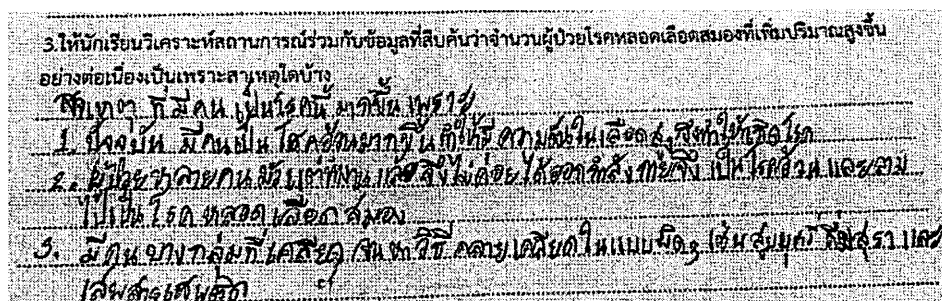 3.ให้นักเรียนวิเคราะห์สถานการณ์ร่วมกับข้อมูลที่สืบค้นว่าจำนวนผู้ป่วยโรคหลอดเลือดสมองที่เพิ่มปริมาณสูงขึ้น
อย่างต่อเนื่องเป็นเพราะสาเหตุใดบ้าง
สาเหตุ ที่มีคน เป็นโรคนี้ มากขึ้น เพราะ
1. ปัจจุบัน มีคนเป็น โรคอ้วนมากขึ้น ทำให้มี ความดันในเลือดสูง จึงทำให้เกิดโรค
2. ผู้ป่วย หลายคน มัวแต่ทำงาน แล้ว จึงไม่ค่อย ได้ออกกำลังกายจึง เป็นโรคอ้วน และลาม
ไปเป็น โรค หลอด เลือด สมอง
3. มีคน บางกลุ่มที่เครียด จนหาวิธี คลายเครียดในแบบผิดๆ เช่น สูบบุหรี่ ดื่มสุรา และ
เสพสารเสพติด